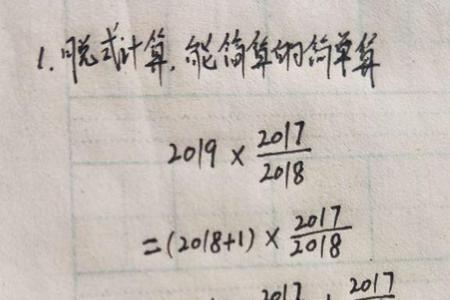 1.脱式计算,能简算的简单算
2019 × 2017/2018
=(2018+1) × 2017/2018
2017 2017